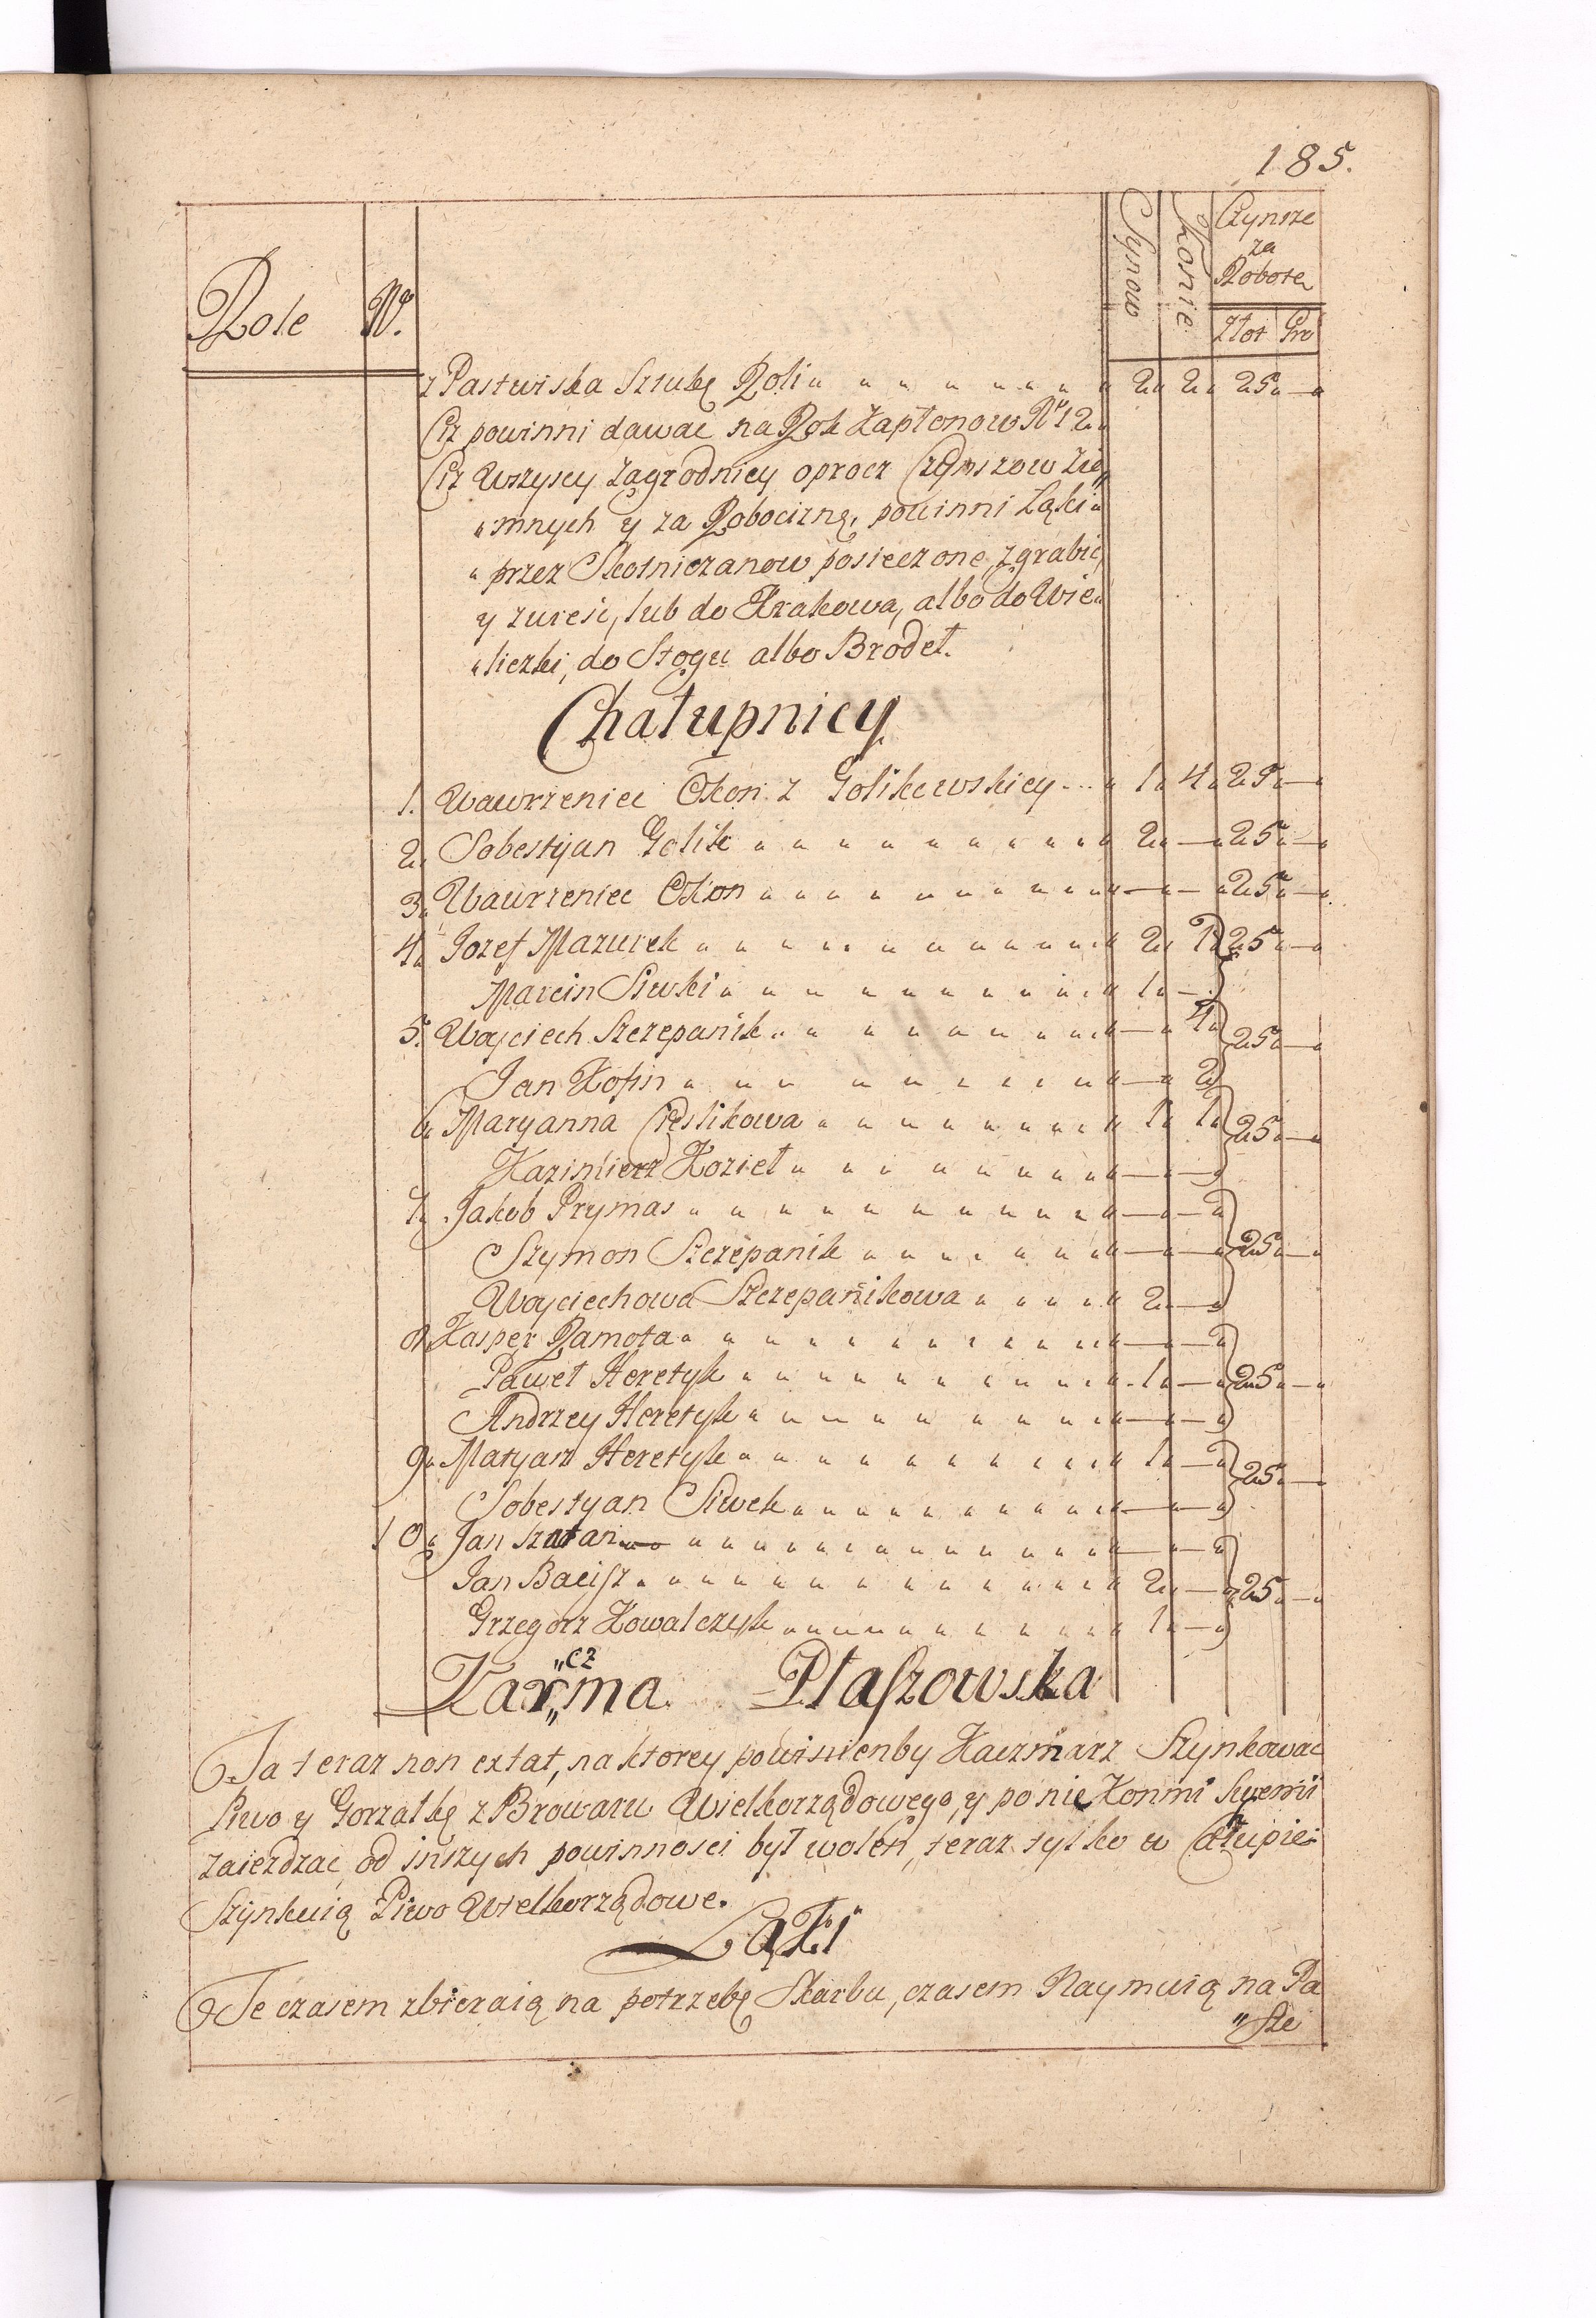 185.
Role No. Synow Konie Czynsze
za
Robotę
Złot Gro
z Pastwiska Sztukę Roli 2 2 25 —
Ciż powinni dawac na Rok Kapłonow No 12
Ciż Wszyscy Zagrodnicy oprocz Czynszow Zie„
„mnych y za Robociznę, powinni Łąki
„przez Skotniczanow posieczone, zgrabic,
y zwieśc, lub do Krakowa, albo do Wie„
„liczki, do Stogu albo Brodeł.
Chałupnicy
1. Wawrzeniec Okon z Golikowskiey 1 4 25 —
2. Sobestyan Golik 2 — 25 —
3. Wawrzeniec Okon — — 25 —
4. Jozef Mazurek 2 1 25 —
Marcin Siwski 1 —
5. Woyciech Szczepanik — 4 25 —
Jan Kosin — 2
6. Maryanna Cieslikowa 1 1 25 —
Kazimierz Kozieł — —
7. Jakob Prymas — —
Szymon Szczepanik — — 25 —
Woyciechowa Szczepanikowa 2 —
8. Kasper Ramota — —
Paweł Heretyk 1 — 25 —
Andrzey Heretyk — —
9. Matyasz Heretyk 1 — 25 —
Sobestyan Siwek — —
10. Jan Szatan — —
Jan Bacisz 2 — 25 —
Grzegorz Kowalczyk 1 —
„cz
Kar„ma Płaszowska
Ta teraz non extat, na ktorey powinienby Kaczmarz Szynkowac
Piwo y Gorzałkę z Browaru Wielkorządowego, y po nie Konmi Swemi
zaiezdzac, od inszych powinnosci był wolen, teraz tylko w Chałupie
Szynkuią Piwo Wielkorządowe.
Łąki
Te czasem zbieraią na potrzebę Skarbu, czasem Naymuią na Pa
„sze